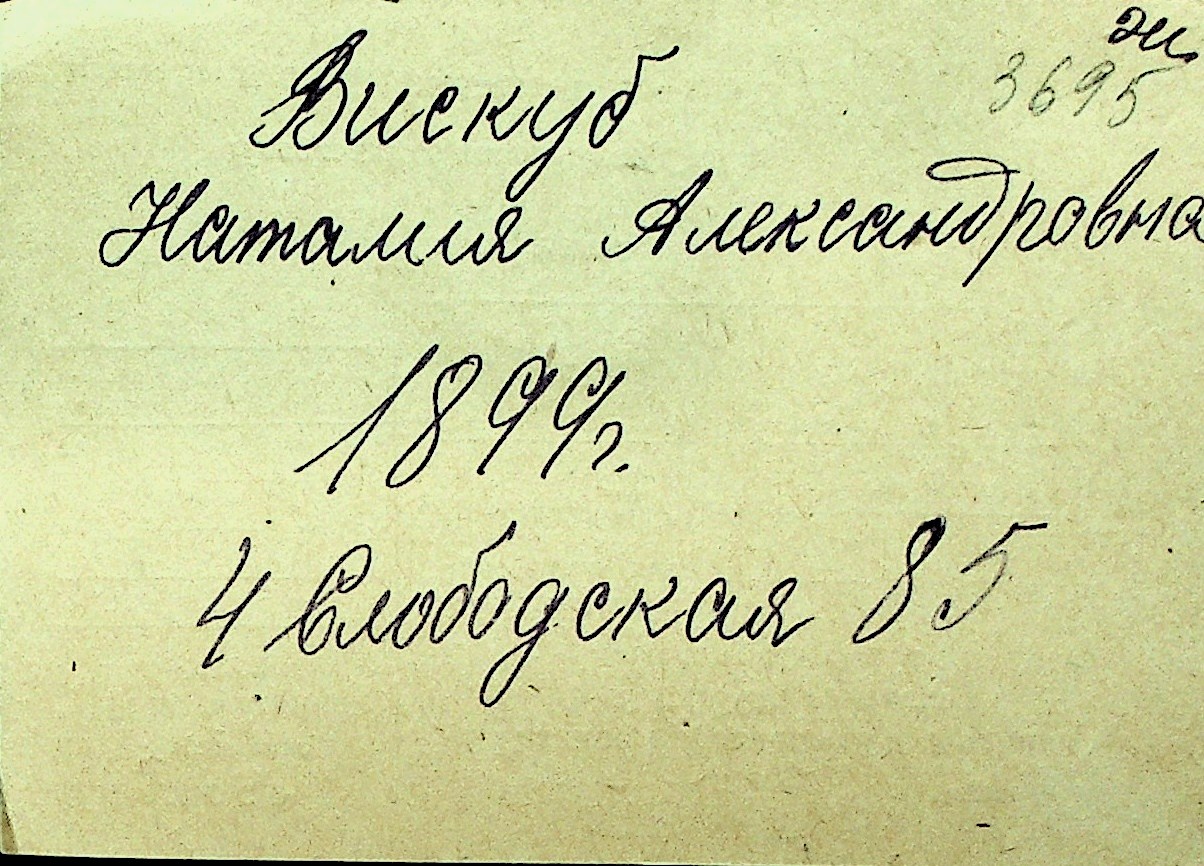 эи.
3695
Вискуб
Наталия Александровна
1899г.
4 Слободская 85